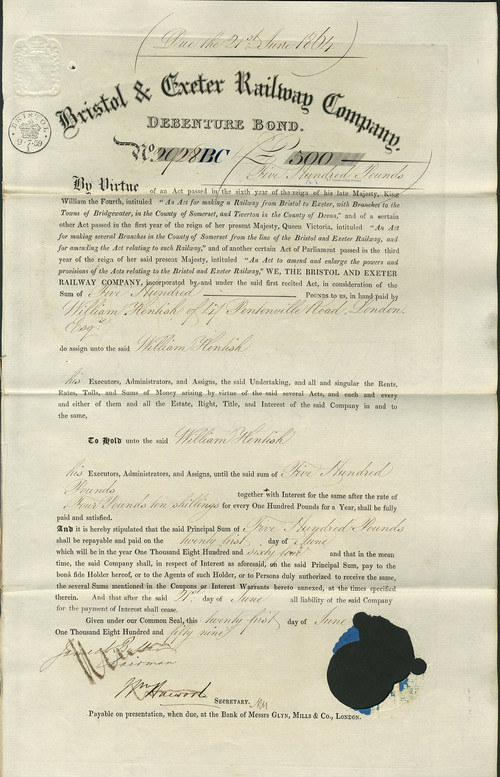 (Due the 21st June 1864)
Bristol & Exeter Railway Company.
DEBENTURE BOND.
BRISTOL
9·7·59
No. 2028 BC £ 500
Five Hundred Pounds
By Virtue of an Act passed in the sixth year of the reign of his late Majesty, King
William the Fourth, intituled "An Act for making a Railway from Bristol to Exeter, with Branches to the
Towns of Bridgewater, in the County of Somerset, and Tiverton in the County of Devon," and of a certain
other Act passed in the first year of the reign of her present Majesty, Queen Victoria, intituled "An Act
for making several Branches in the County of Somerset from the line of the Bristol and Exeter Railway, and
for amending the Act relating to such Railway," and of another certain Act of Parliament passed in the third
year of the reign of her said present Majesty, intituled "An Act to amend and enlarge the powers and
provisions of the Acts relating to the Bristol and Exeter Railway," WE, THE BRISTOL AND EXETER
RAILWAY COMPANY, incorporated by and under the said first recited Act, in consideration of the
Sum of Five Hundred POUNDS to us, in hand paid by
William of Pentonville Road, London,
Esqre
do assign unto the said William
his Executors, Administrators, and Assigns, the said Undertaking, and all and singular the Rents,
Rates, Tolls, and Sums of Money arising by virtue of the said several Acts, and each and every
and either of them and all the Estate, Right, Title, and Interest of the said Company in and to
the same,
To Hold unto the said William
his Executors, Administrators, and Assigns, until the said sum of Five Hundred
Pounds together with Interest for the same after the rate of
Four Pounds ten shillings for every One Hundred Pounds for a Year, shall be fully
paid and satisfied.
And it is hereby stipulated that the said Principal Sum of Five Hundred Pounds
shall be repayable and paid on the twenty first day of June
which will be in the year One Thousand Eight Hundred and sixty four and that in the mean
time, the said Company shall, in respect of Interest as aforesaid, on the said Principal Sum, pay to the
bonâ fide Holder hereof, or to the Agents of such Holder, or to Persons duly authorized to receive the same,
the several Sums mentioned in the Coupons or Interest Warrants hereto annexed, at the times specified
therein. And that after the said 21st day of June all liability of the said Company
for the payment of Interest shall cease.
Given under our Common Seal, this twenty first day of June
One Thousand Eight Hundred and fifty nine
Chairman
SECRETARY.
Payable on presentation, when due, at the Bank of Messrs GLYN, MILLS & CO., LONDON.